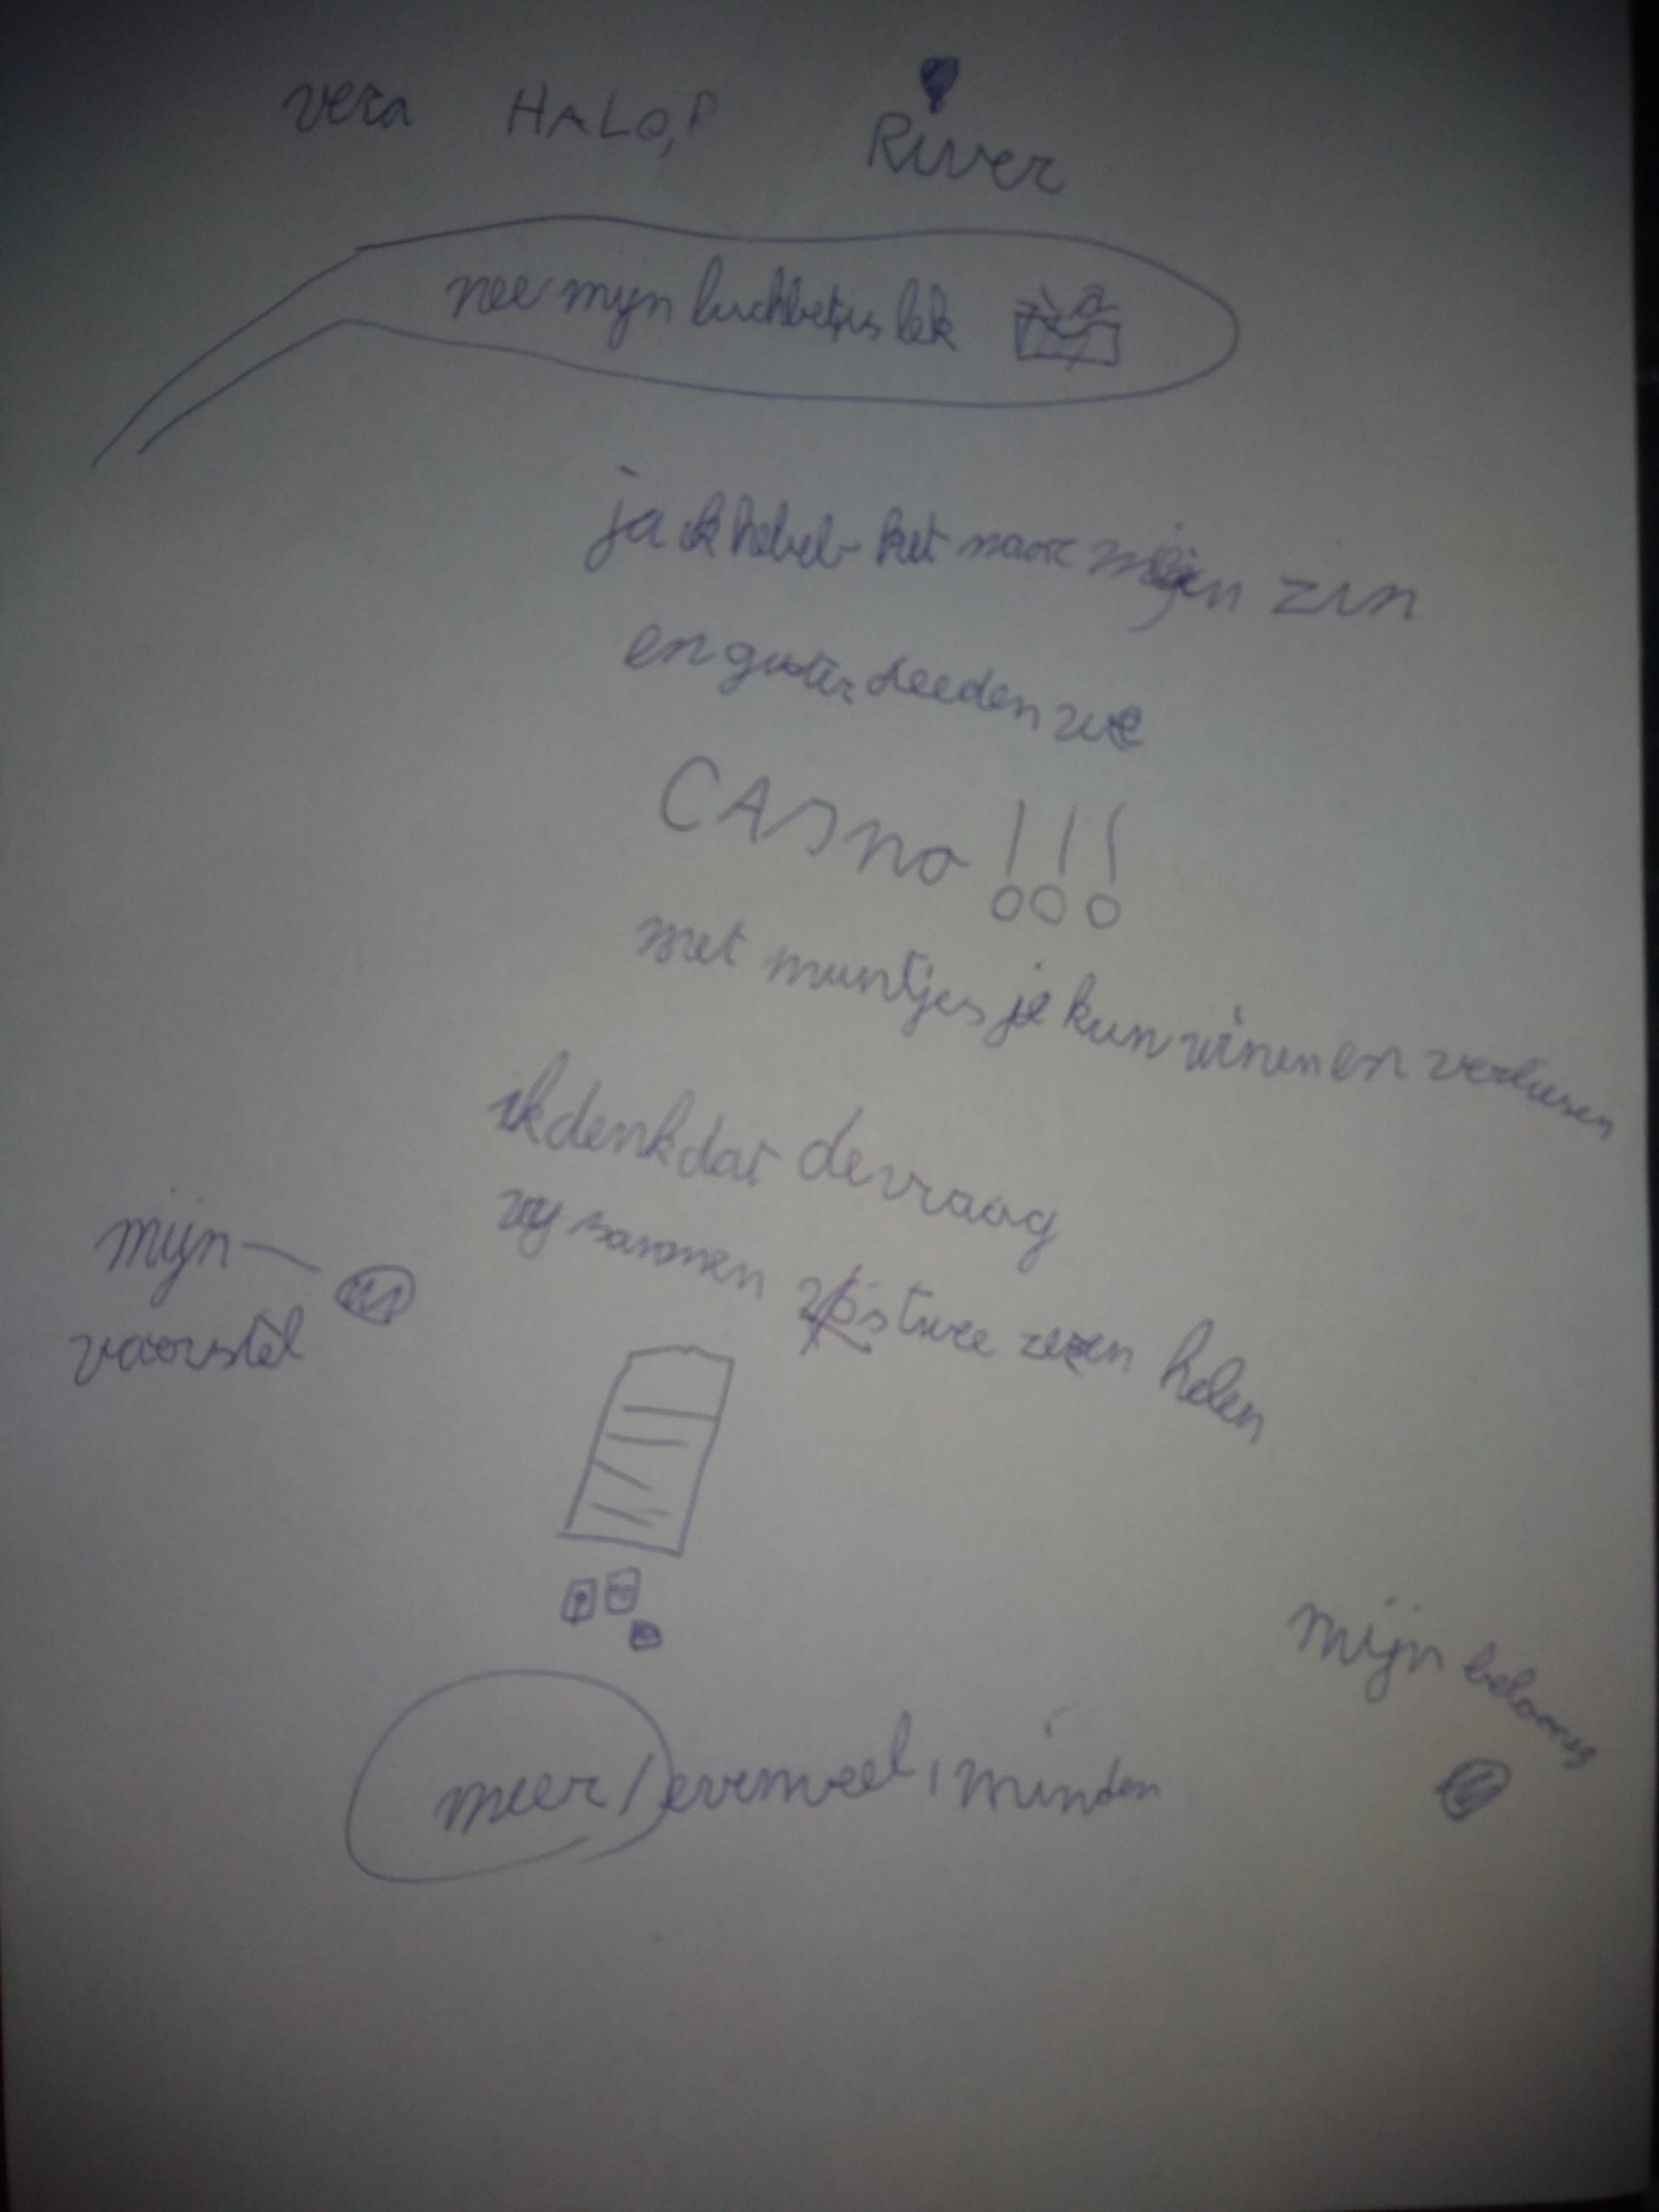 vera HALO,P River
nee mijn luchbet is lek
ja ik hebel het naar mijn zin
en guster deeden we
CASno!!!
met muntjes je kun winen en verliesen
ik denk dat de vraag
samen twee helen
mijn
voorstel
mijn beloning
meer / evenveel, minder